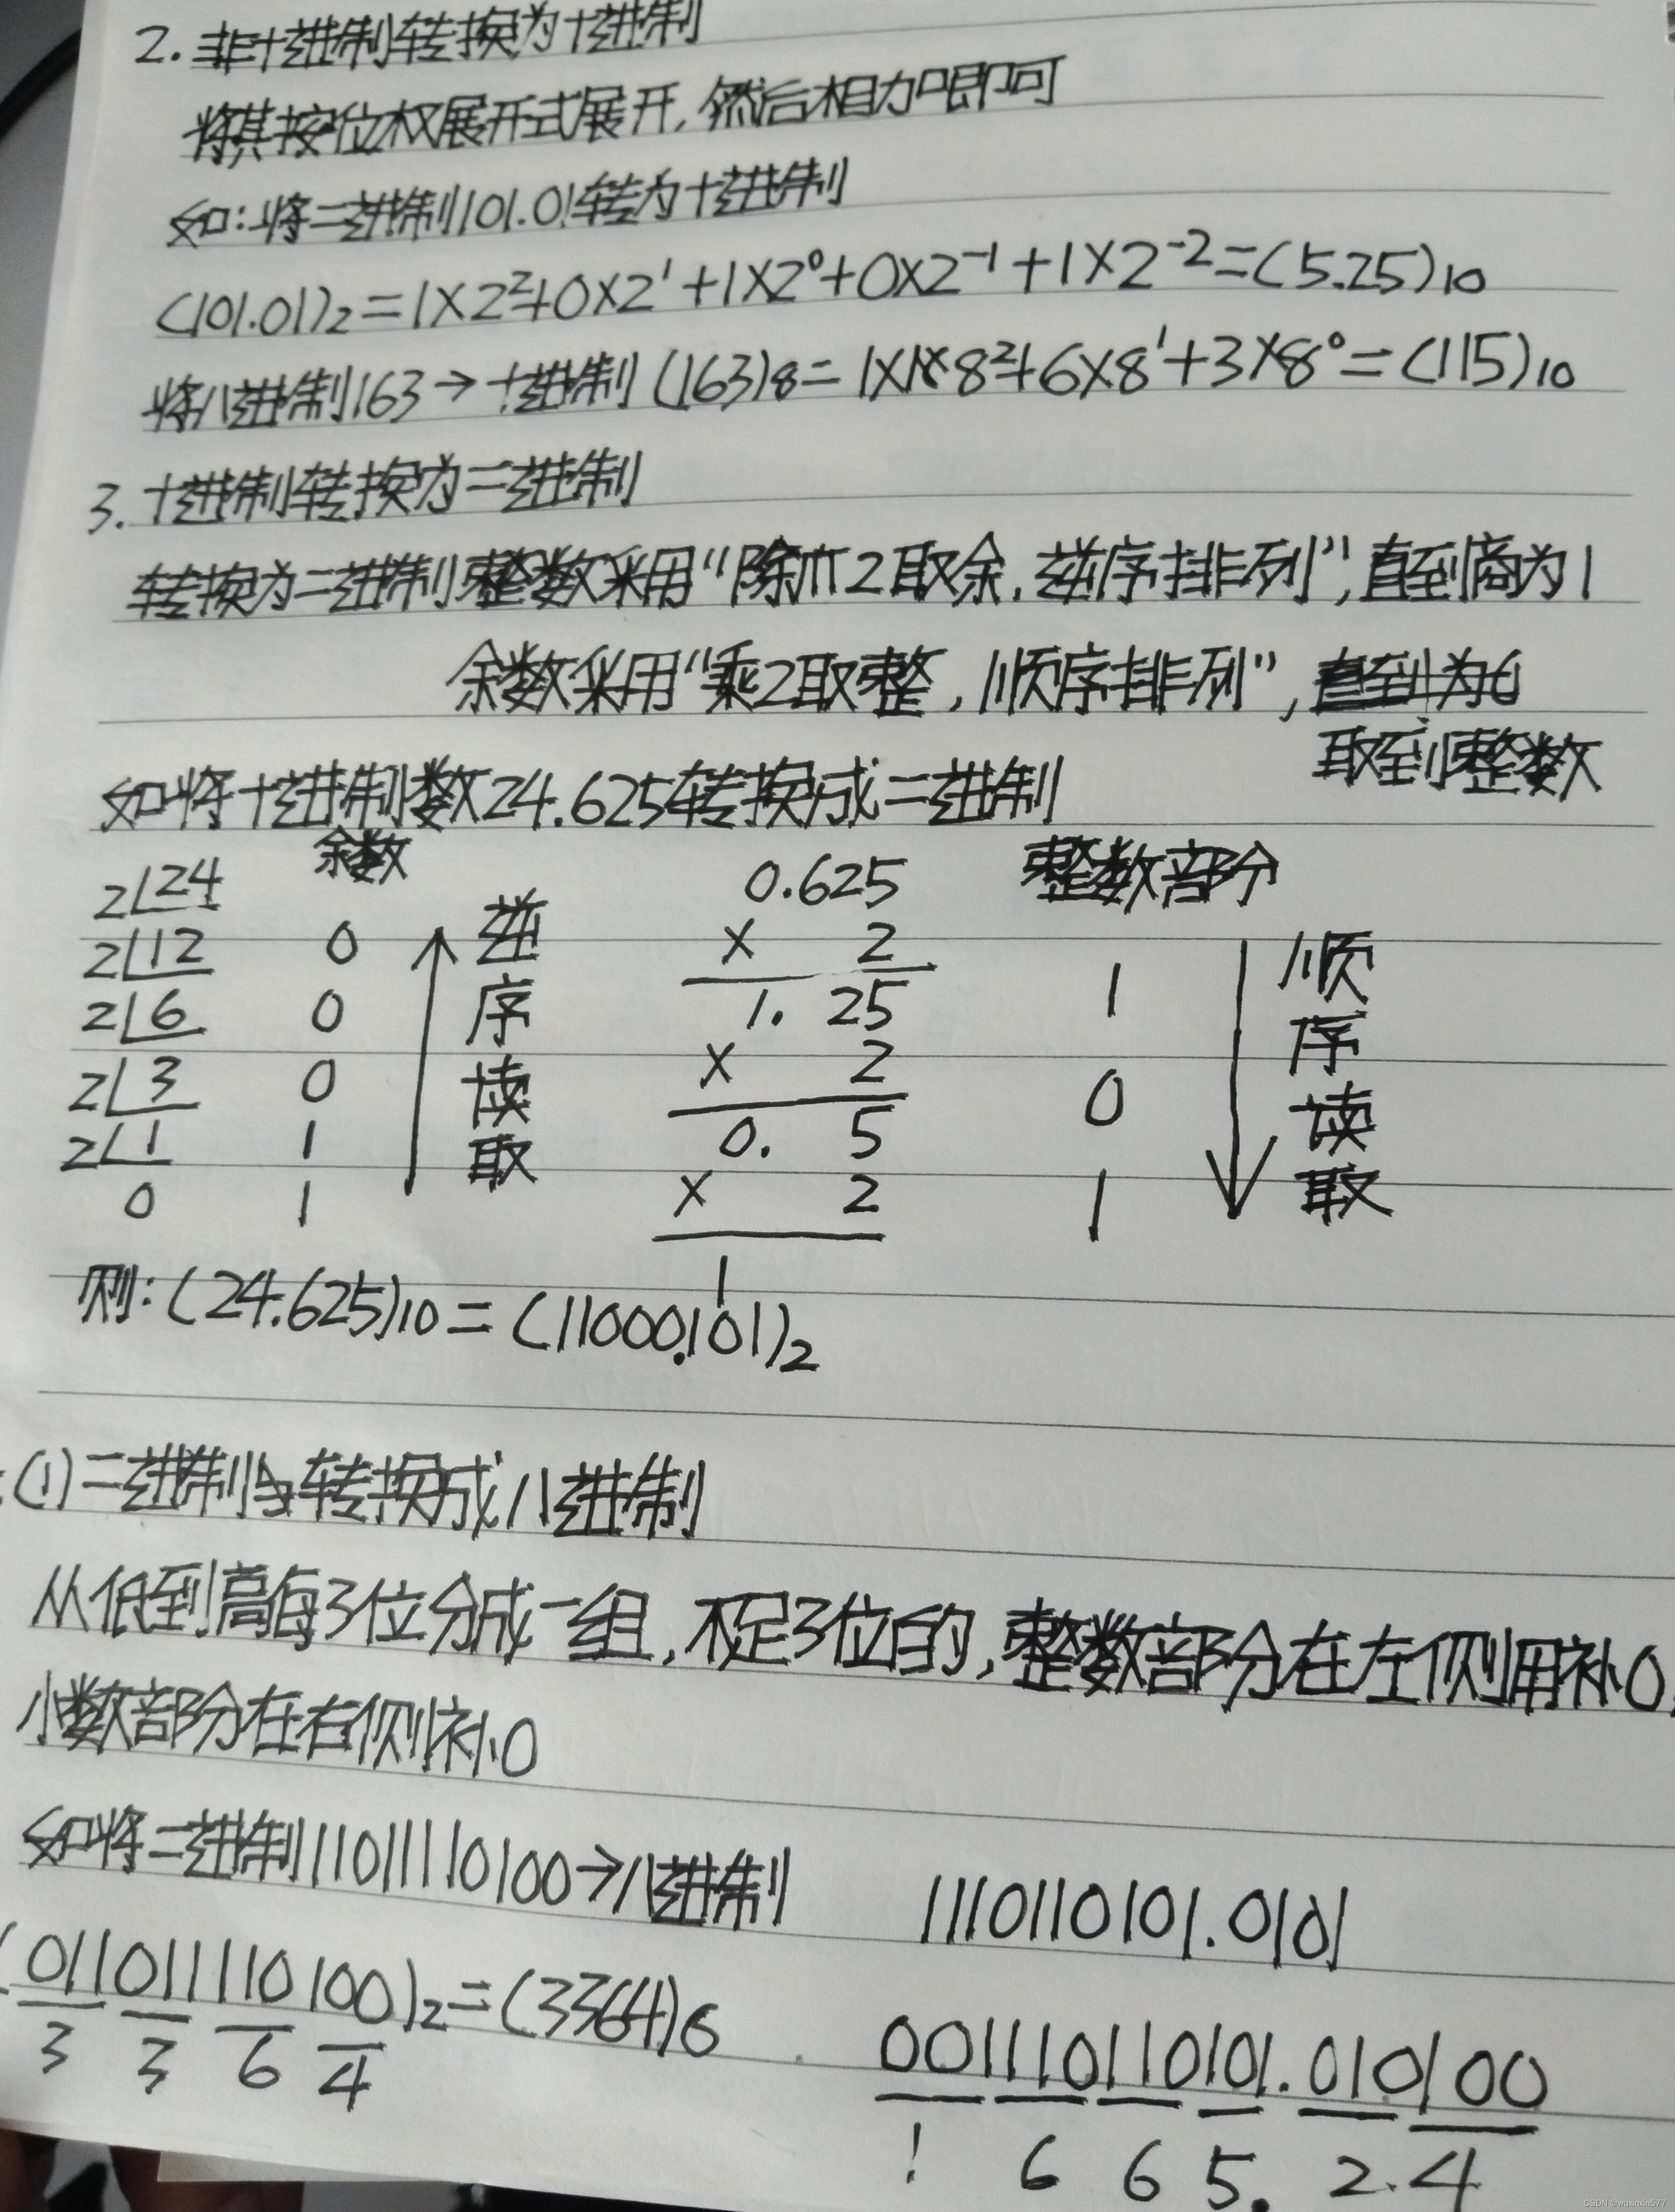 2. 非十进制转换为十进制
将其按位权展开式展开, 然后相加即可
如: 将二进制101.01转为十进制
(101.01)2=1×2²+0×2¹+1×2⁰+0×2⁻¹+1×2⁻²=(5.25)10
将八进制163→十进制 (163)8=1×8²+6×8¹+3×8⁰=(115)10
3. 十进制转换为二进制
转换为二进制整数采用“除2取余, 逆序排列”, 直到商为1
余数采用“乘2取整, 顺序排列”, 直到为0
取到整数
如将十进制数24.625转换成二进制
余数 整数部分
2 24 0.625
2 12 0 × 2
2 6 0 1. 25 1
2 3 0 × 2
2 1 1 0. 5 0
0 1 × 2
1 1
逆序读取
顺序读取
则: (24.625)10=(11000.101)2
(1) 二进制转换成八进制
从低到高每3位分成一组, 不足3位的, 整数部分在左侧用补0,
小数部分在右侧补0
如将二进制11011110100→八进制
1110110101.0101
(011011110100)2=(3364)6
3 3 6 4
001110110101.010100
1 6 6 5. 2 4
CSDN @wuxinxin577